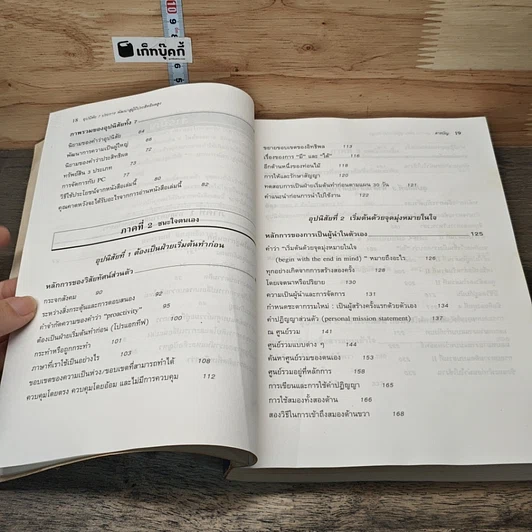 เก็ทบุ๊คกี้
18 อุปนิสัย 7 ประการ พัฒนาสู่ผู้มีประสิทธิผลสูง
ภาพรวมของอุปนิสัยทั้ง 7
นิยามของคำว่าอุปนิสัย 64
พัฒนาการความเป็นผู้ใหญ่ 66
นิยามของคำว่าประสิทธิผล 72
ทรัพย์สิน 3 ประเภท 73
การจัดการกับ PC 77
วิธีใช้ประโยชน์จากหนังสือเล่มนี้ 80
คุณคาดหวังจะได้รับอะไรจากการอ่านหนังสือเล่มนี้ 82
ภาคที่ 2 ชนะใจตนเอง
อุปนิสัยที่ 1 ต้องเป็นฝ่ายเริ่มต้นทำก่อน
หลักการของวิสัยทัศน์ส่วนตัว
กระจกสังคม 90
ระหว่างสิ่งกระตุ้นและการตอบสนอง 92
คำจำกัดความของคำว่า "proactivity" 95
ต้องเป็นฝ่ายเริ่มต้นทำก่อน (โปรแอกทีฟ) 100
กระทำหรือถูกกระทำ 101
ภาษาที่เราใช้เป็นอย่างไร 103
ขอบเขตของความเป็นห่วง/ขอบเขตที่สามารถทำได้ 108
ควบคุมโดยตรง ควบคุมโดยอ้อม และไม่มีการควบคุม 112
สารบัญ 19
ขยายขอบเขตของอิทธิพล 113
เรื่องของการ "มี" และ "ได้" 116
อีกด้านหนึ่งของท่อนไม้ 118
การให้และรักษาสัญญา 120
ทดสอบการเป็นฝ่ายเริ่มต้นก่อนตามแผน 30 วัน 121
คำแนะนำก่อนการนำไปใช้งาน 122
อุปนิสัยที่ 2 เริ่มต้นด้วยจุดมุ่งหมายในใจ
หลักการของการเป็นผู้นำในตัวเอง 125
คำว่า "เริ่มต้นด้วยจุดมุ่งหมายในใจ
(begin with the end in mind) " หมายถึงอะไร 126
ทุกอย่างเกิดจากการสร้างสองครั้ง 128
โดยเจตนาหรือปริยาย 130
ความเป็นผู้นำและการจัดการ 131
กำหนดชะตากรรมใหม่ : เป็นผู้สร้างครั้งแรกด้วยตัวเอง 134
คำปฏิญาณส่วนตัว (personal mission statement) 137
ณ ศูนย์รวม 141
ศูนย์รวมแบบต่าง ๆ 144
ค้นหาศูนย์รวมของตนเอง 153
ศูนย์รวมอยู่ที่หลักการ 158
การเขียนและการใช้คำปฏิญญา 165
การใช้สมองทั้งสองด้าน 166
สองวิธีในการเข้าถึงสมองด้านขวา 168